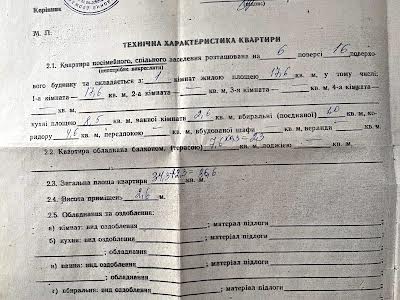 Керівник
М. П.
ТЕХНІЧНА ХАРАКТЕРИСТИКА КВАРТИРИ
2.1. Квартира посімейного, спільного заселення розташована на 6 поверсі 16 поверхо-
(непотрібне викреслити)
вого будинку та складається з: 1 кімнат жилою площею 17,6 кв. м, у тому числі:
1-а кімната — 17,6 кв. м, 2-а кімната — кв. м, 3-я кімната — кв. м, 4-а кімната —
кухні площею 8,5 кв. м, ванної кімнати кв. м, вбиральні (поєднаної) кв. м, ко-
ридору кв. м, передпокою — кв. м, вбудованої шафи кв. м, веранда кв. м.
2.2. Квартира обладнана балконом, (терасою) кв. м, лоджією — кв. м.
2.3. Загальна площа квартири кв. м.
2.4. Висота приміщень 2,6 м.
2.5. Обладнання та оздоблення:
а) кімнат: вид оздоблення ; матеріал підлоги
б) кухня: вид оздоблення ; матеріал підлоги
; обладнання
в) ванна: вид оздоблення ; матеріал підлоги
; обладнання
г) вбиральня: вид оздоблення ; матеріал підлоги